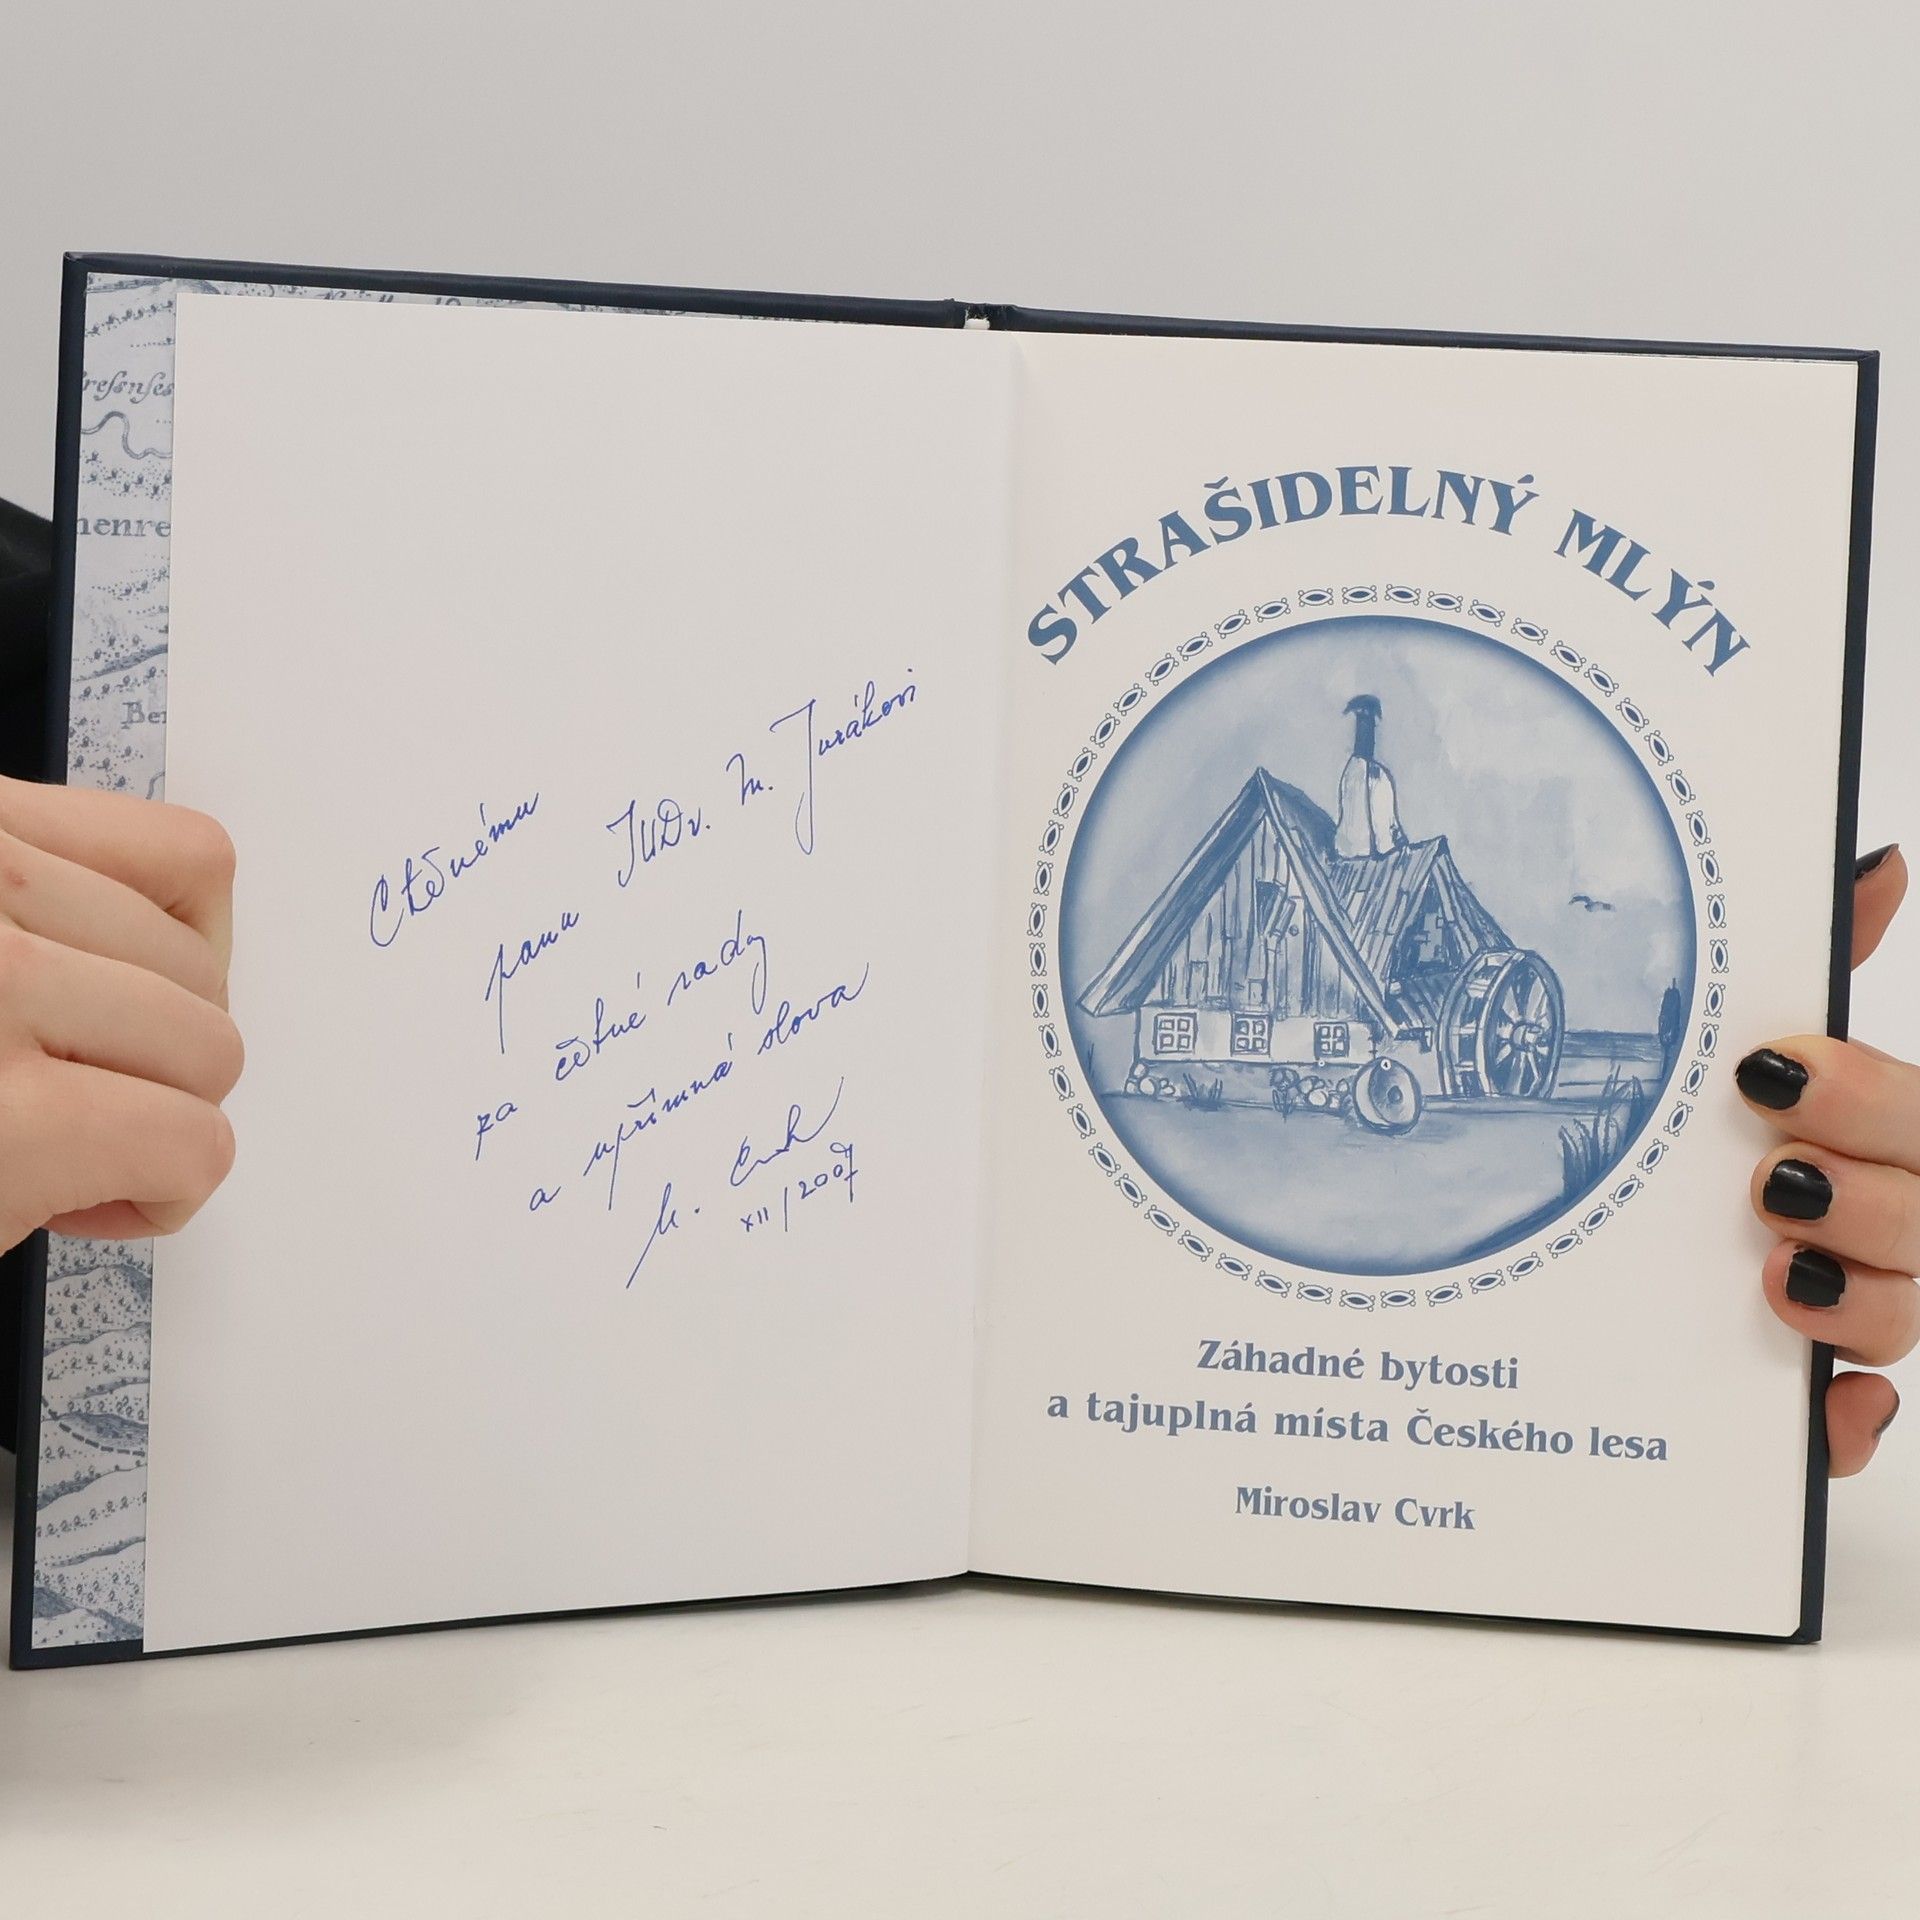 resnses
henre
Ber
Ctěnému
panu JUDr. M. Jurákovi
za četné rady
a upřímná slova
M. Cvrk
XII/2007
STRAŠIDELNÝ MLÝN
Záhadné bytosti
a tajuplná místa Českého lesa
Miroslav Cvrk